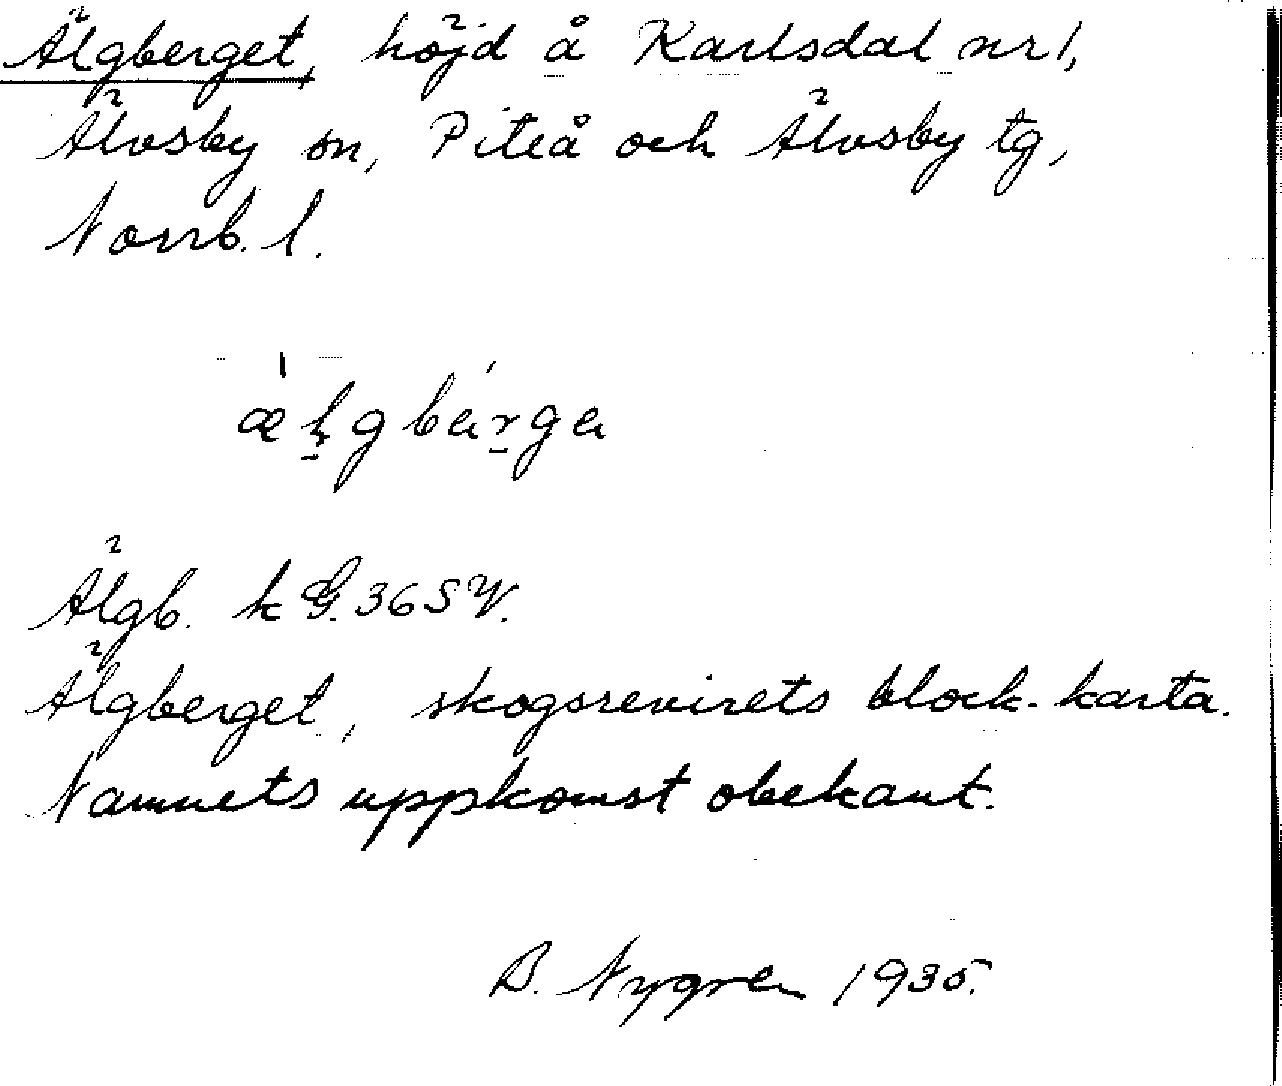 Älgberget, höjd å Karlsdal nr 1,
Älvsby sn, Piteå och Älvsby tg,
Norrb. l.
Älgb. k G. 36 SV.
Älgberget, skogsrevirets block-karta.
Namnets uppkomst obekant.
B. Nygren 1935.